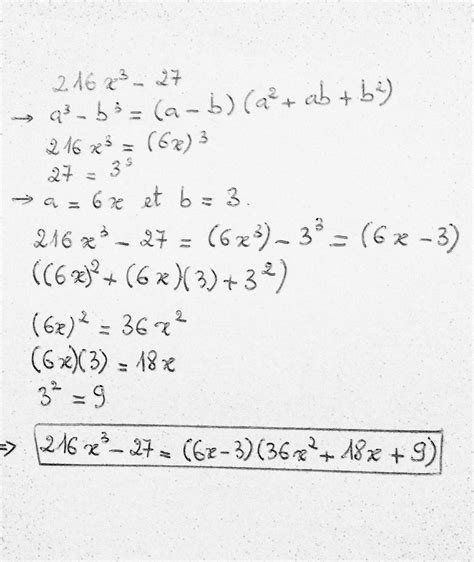 216x³ - 27
→ a³ - b³ = (a - b) (a² + ab + b²)
216x³ = (6x)³
27 = 3³
→ a = 6x et b = 3.
216x³ - 27 = (6x³) - 3³ = (6x - 3)
((6x)² + (6x)(3) + 3²)
(6x)² = 36x²
(6x)(3) = 18x
3² = 9
⇒ 216x³ - 27 = (6x - 3)(36x² + 18x + 9)